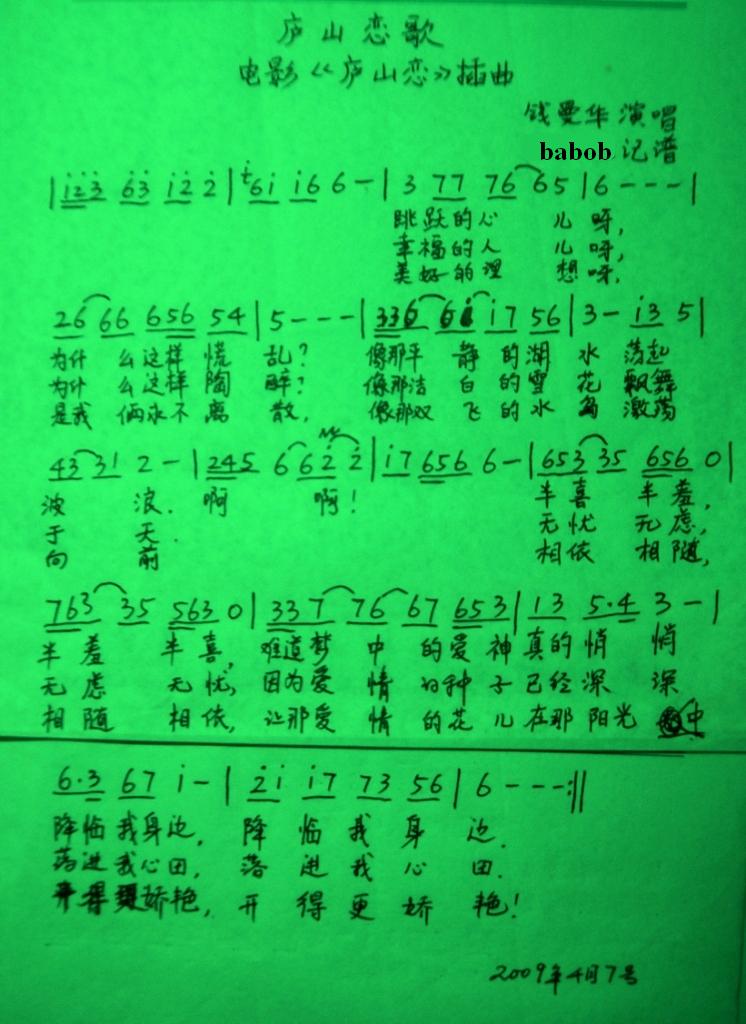 庐山恋歌
电影《庐山恋》插曲
钱曼华 演唱
babob 记谱
|i̇2̇3̇ 6̇3̇ i̇2̇ 2̇|6i̇ i̇6 6-|3 77 76 65|6---|
跳跃的心 儿呀,
幸福的人 儿呀,
美好的理 想呀,
26 66 656 54|5---|336 6i̇ i̇7 56|3- i̇3 5|
为什么这样慌乱? 像那平静的湖水荡起
为什么这样陶醉? 像那洁白的雪花飘舞
是我俩永不离散, 像那双飞的水鸟激荡
43 31 2-|245 6 62̇ 2̇|i̇7 656 6-|653 35 656 0|
波浪. 啊 啊! 半喜半羞,
于天. 无忧无虑,
向前 相依相随,
763 35 563 0|337 76 67 653|13 5·4 3-|
半羞半喜, 难道梦中的爱神真的悄悄
无虑无忧, 因为爱情的种子已经深深
相随相依, 让那爱情的花儿在那阳光中
6·3 67 i̇-|2̇i̇ i̇7 73 56|6---:||
降临我身边, 降临我身边.
落进我心田, 落进我心田.
开得更娇艳, 开得更娇艳!
2009年4月7号